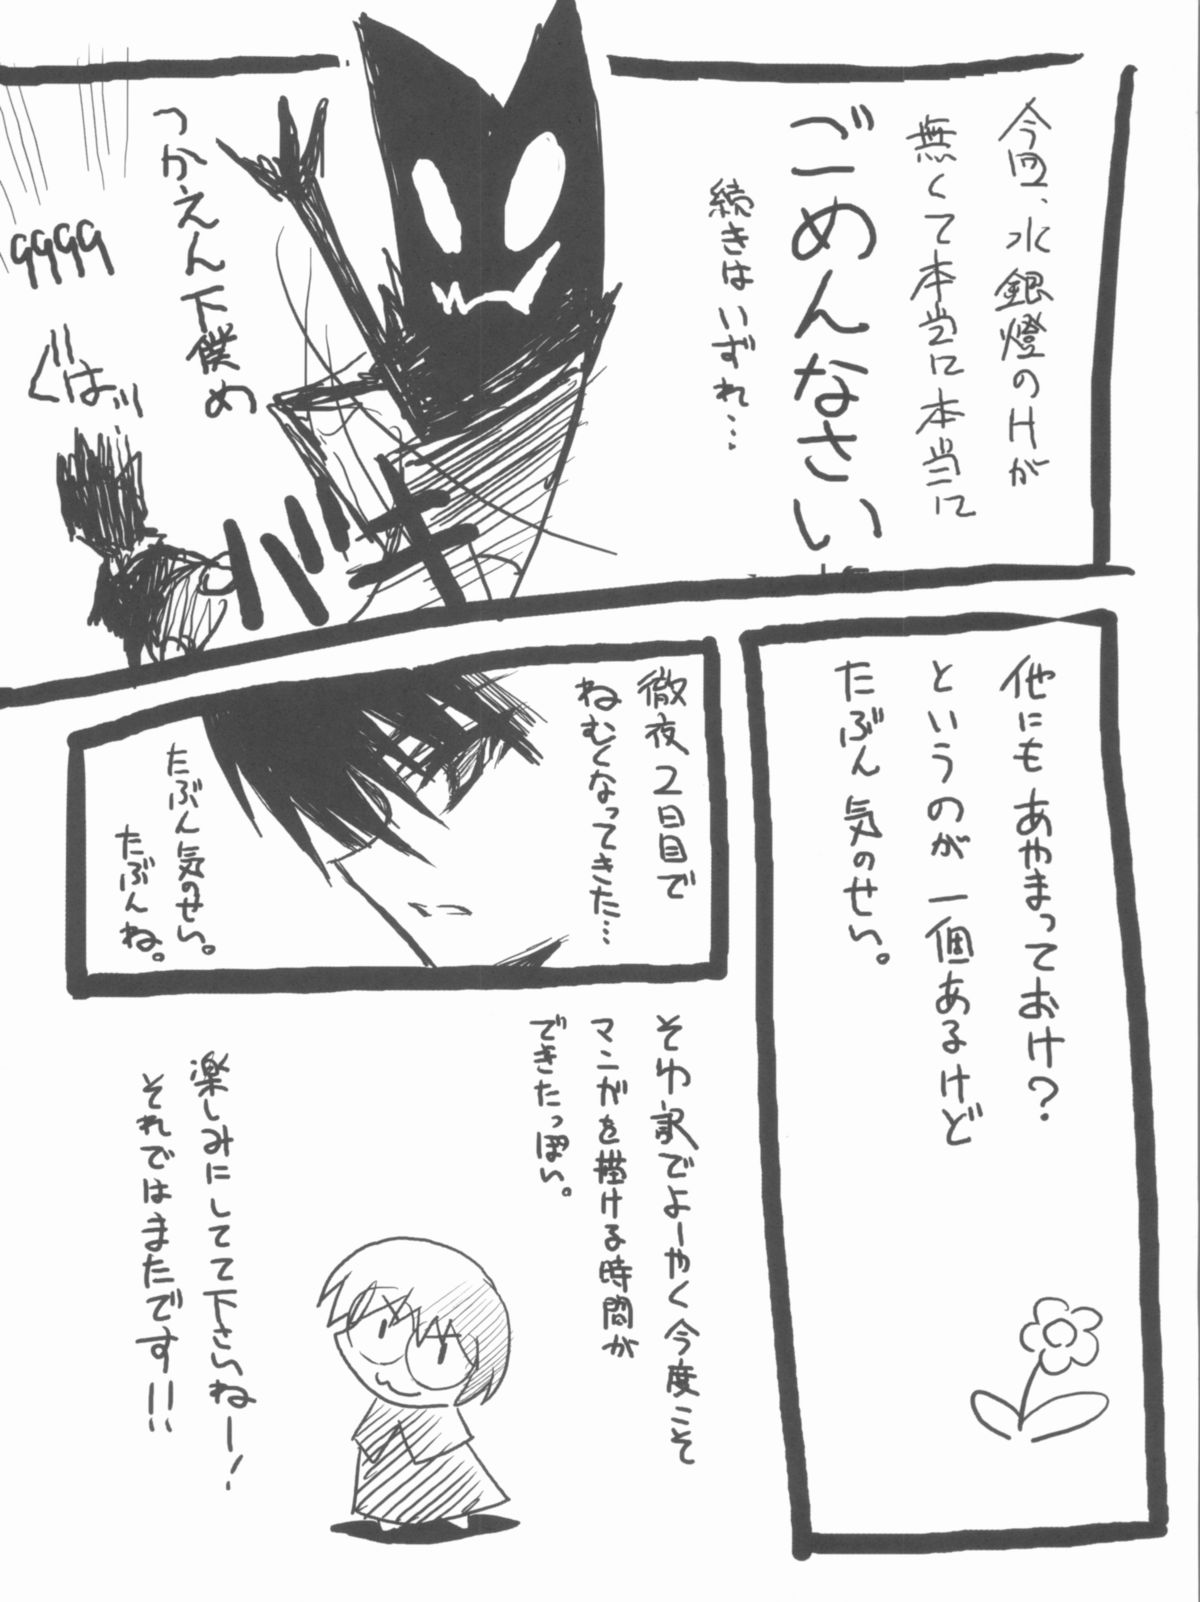 今回、水銀燈のHが
無くて本当に本当に
ごめんなさい
続きはいずれ…
つかえん下僕め
qqqq
ぐはッ
バキ
他にもあやまっておけ?
というのが一個あるけど
たぶん気のせい。
徹夜2日目で
ねむくなってきた…
たぶん気のせい。
たぶんね。
そゆ訳でよーやく今度こそ
マンガを描ける時間が
できたっぽい。
楽しみにしてて下さいねー!
それではまたです!!